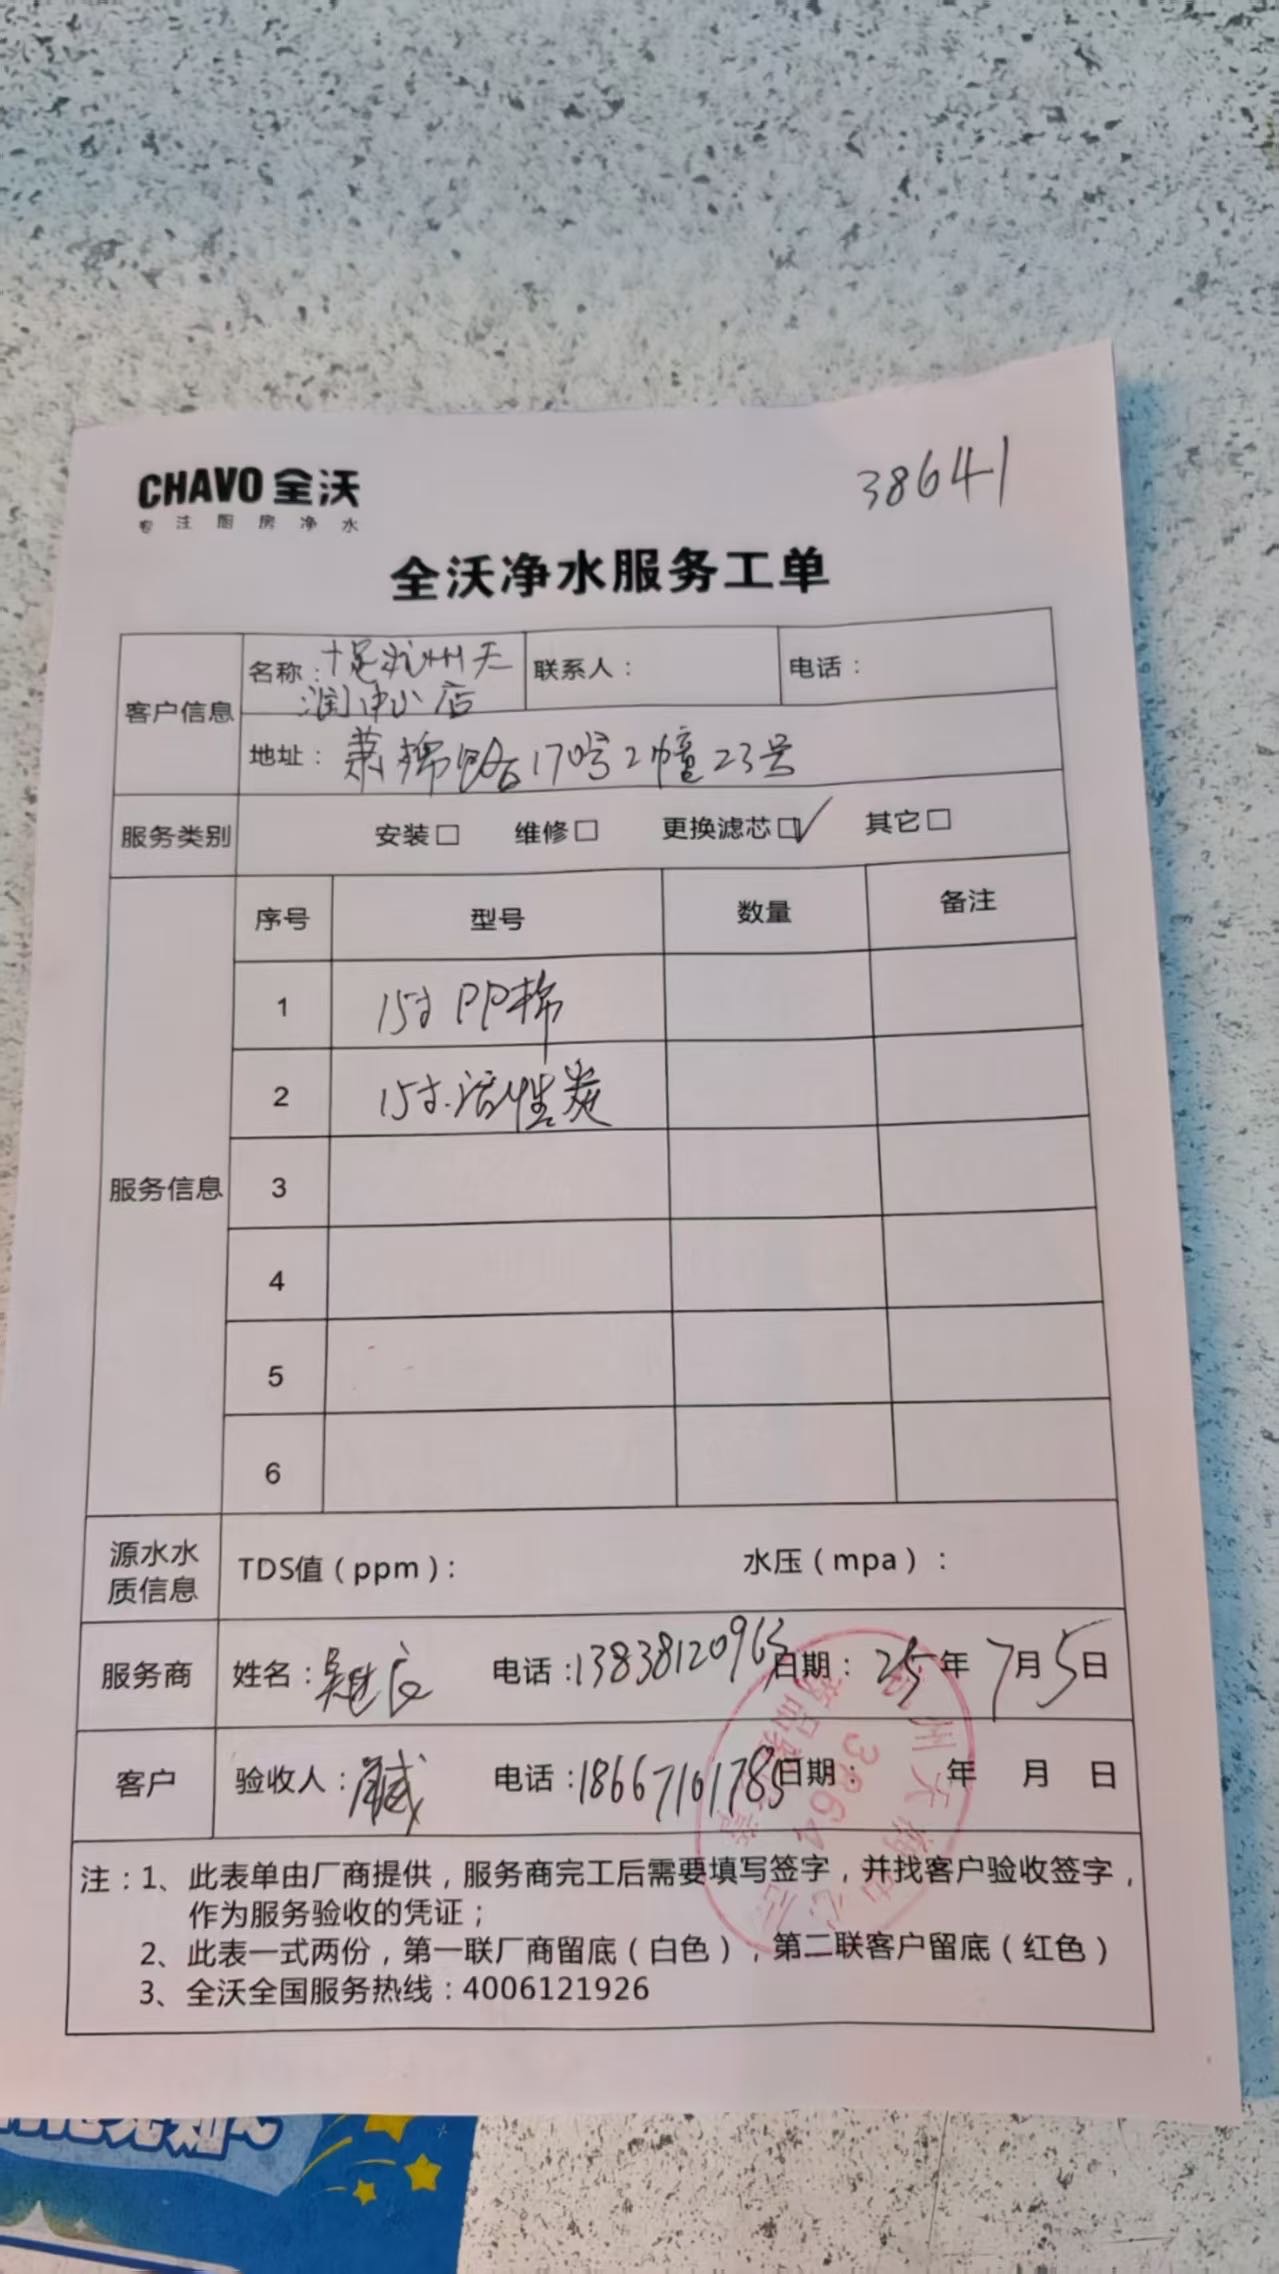 CHAVO 全沃
专注厨房净水
38641
全沃净水服务工单
客户信息
名称：十足杭州天
润中心店
联系人：
电话：
地址：萧棉路170号2幢23号
服务类别
安装□ 维修□ 更换滤芯□✓ 其它□
服务信息
序号 型号 数量 备注
1 15寸PP棉
2 15寸活性炭
3
4
5
6
源水水
质信息
TDS值（ppm）： 水压（mpa）：
服务商 姓名： 电话：13838120963 日期：25年7月5日
客户 验收人： 电话：18667101785 日期： 年 月 日
杭州天润中心店
3864
注：1、此表单由厂商提供，服务商完工后需要填写签字，并找客户验收签字，
作为服务验收的凭证；
2、此表一式两份，第一联厂商留底（白色），第二联客户留底（红色）
3、全沃全国服务热线：4006121926